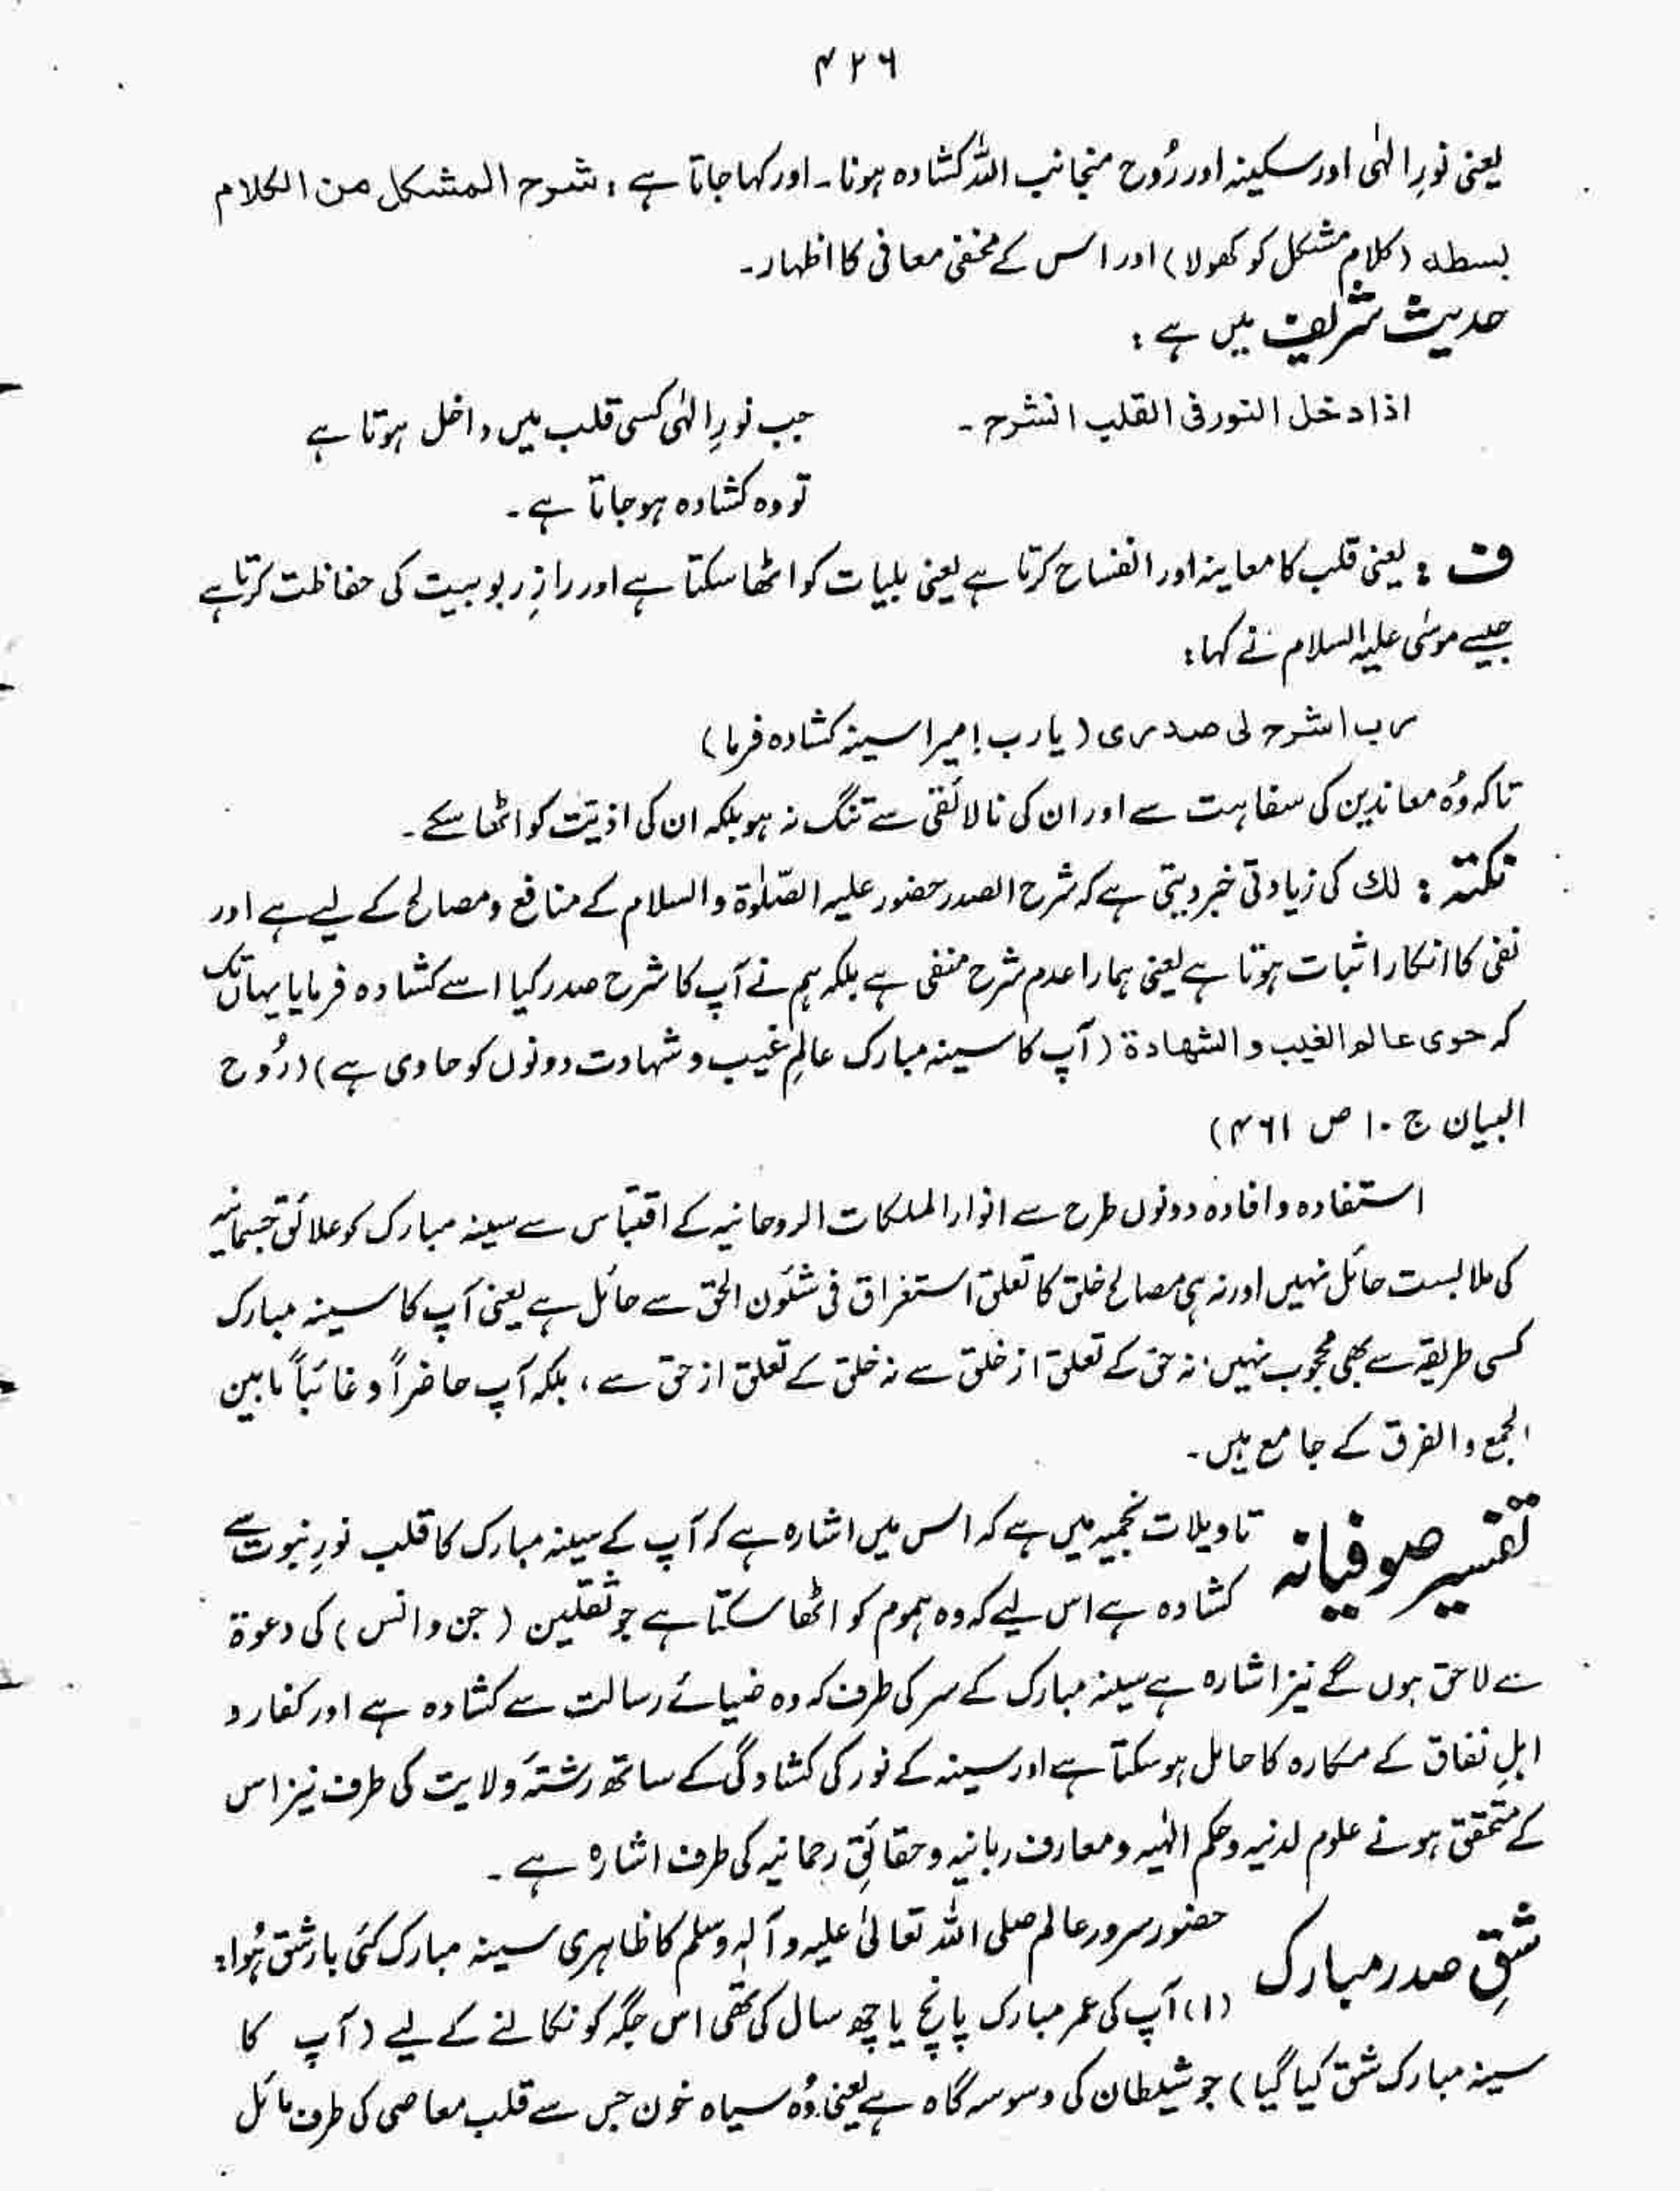 ۴۲۶
یعنی نورِ الٰہی اور سکینہ اور رُوح منجانب اللہ کشادہ ہونا۔ اور کہا جاتا ہے : شرح المشکل من الکلام
بسطہ (کلامِ مشکل کو کھولا) اور اس کے مخفی معانی کا اظہار۔
حدیث شریف میں ہے :
اذا دخل النور فی القلب انشرح ۔ جب نورِ الٰہی کسی قلب میں داخل ہوتا ہے
تو وہ کشادہ ہو جاتا ہے۔
ف : یعنی قلب کا معاینہ اور انفساح کرتا ہے یعنی بلیات کو اٹھا سکتا ہے اور رازِ ربوبیت کی حفاظت کرتا ہے
جیسے موسٰی علیہ السلام نے کہا :
رب اشرح لی صدری (یا رب ! میرا سینہ کشادہ فرما)
تاکہ وُہ معاندین کی سفاہت سے اور ان کی نالائقی سے تنگ نہ ہو بلکہ ان کی اذیت کو اٹھا سکے۔
نکتہ : لك کی زیادتی خبر دیتی ہے کہ شرح الصدر حضور علیہ الصلوٰۃ والسلام کے منافع و مصالح کے لیے ہے اور
نفی کا انکار اثبات ہوتا ہے یعنی ہمارا عدم شرح منفی ہے بلکہ ہم نے آپ کا شرح صدر کیا اسے کشادہ فرمایا یہاں تک
کہ حوی عالم الغیب والشھادۃ (آپ کا سینہ مبارک عالمِ غیب و شہادت دونوں کو حاوی ہے) (رُوح
البیان ج ۱۰ ص ۴۶۱)
استفادہ و افادہ دونوں طرح سے انوار الملکات الروحانیہ کے اقتباس سے سینہ مبارک کو علائق جسمانیہ
کی ملابست حائل نہیں اور نہ ہی مصالح خلق کا تعلق استغراق فی شئون الحق سے حائل ہے یعنی آپ کا سینہ مبارک
کسی طریقہ سے بھی محجوب نہیں نہ حق کے تعلق از خلق سے نہ خلق کے تعلق از حق سے ، بلکہ آپ حاضراً و غائباً مابین
الجمع و الفرق کے جامع ہیں۔
تفسیر صوفیانہ تاویلات نجمیہ میں ہے کہ اس میں اشارہ ہے کہ آپ کے سینہ مبارک کا قلب نورِ نبوت سے
کشادہ ہے اس لیے کہ وہ ہموم کو اٹھا سکتا ہے جو ثقلین (جن و انس) کی دعوۃ
سے لاحق ہوں گے نیز اشارہ ہے سینہ مبارک کے سر کی طرف کہ وہ ضیائے رسالت سے کشادہ ہے اور کفار و
اہلِ نفاق کے مکارہ کا حامل ہو سکتا ہے اور سینہ کے نور کی کشادگی کے ساتھ رشتۂ ولایت کی طرف نیز اس
کے متحقق ہونے علوم لدنیہ و حکم الٰہیہ و معارف ربانیہ و حقائقِ رحمانیہ کی طرف اشارہ ہے۔
شقِ صدر مبارک حضور سرور عالم صلی اللہ تعالیٰ علیہ وآلہٖ وسلم کا ظاہری سینہ مبارک کئی بار شق ہُوا :
(۱) آپ کی عمر مبارک پانچ یا چھ سال کی تھی اس جگہ کو نکالنے کے لیے (آپ کا
سینہ مبارک شق کیا گیا) جو شیطان کی وسوسہ گاہ ہے یعنی وُہ سیاہ خون جس سے قلب معاصی کی طرف مائل